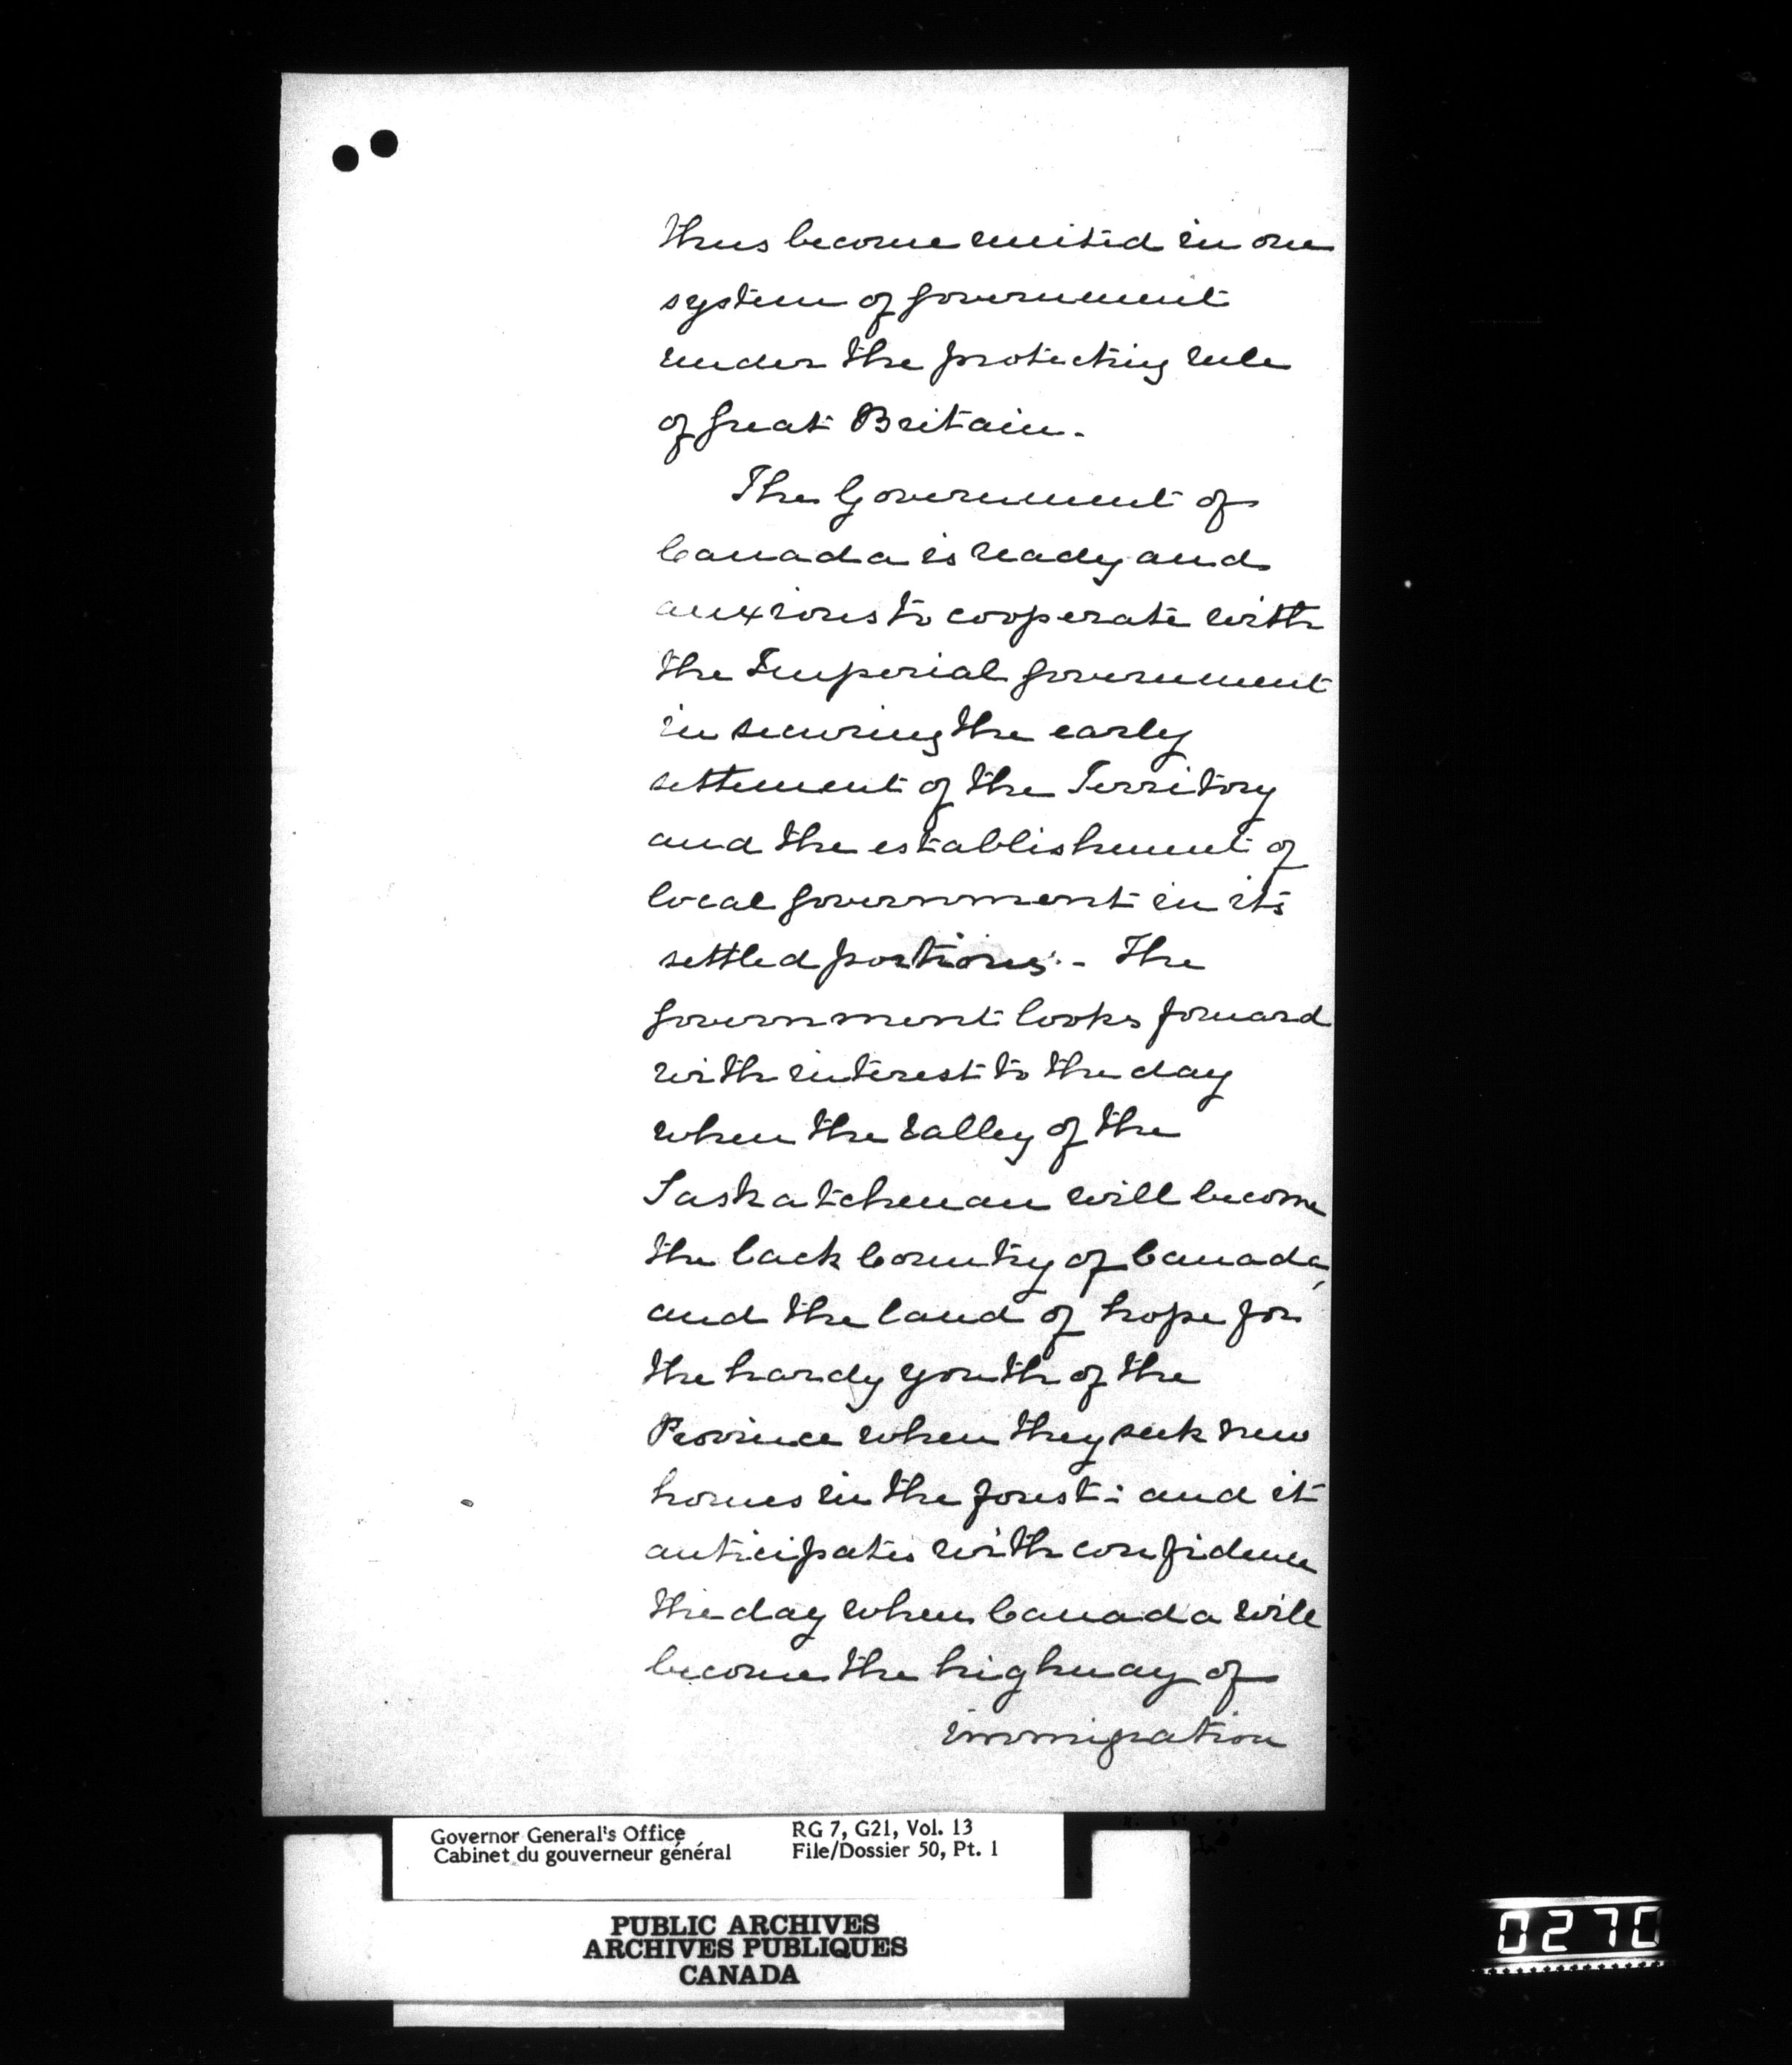 thus become united in one
system of government
under the protecting rule
of Great Britain.
The Government of
Canada is ready and
anxious to cooperate with
the Imperial Government
in securing the early
settlement of the Territory
and the establishment of
local government in its
settled portions. - The
Government looks forward
with interest to the day
when the Valley of the
Saskatchewan will become
the back Country of Canada,
and the land of hope for
the hardy youth of the
Province when they seek new
homes in the forest: and it
anticipates with confidence
the day when Canada will
become the highway of
immigration
Governor General's Office
Cabinet du gouverneur général
RG 7, G21, Vol. 13
File/Dossier 50, Pt. 1
PUBLIC ARCHIVES
ARCHIVES PUBLIQUES
CANADA
0270